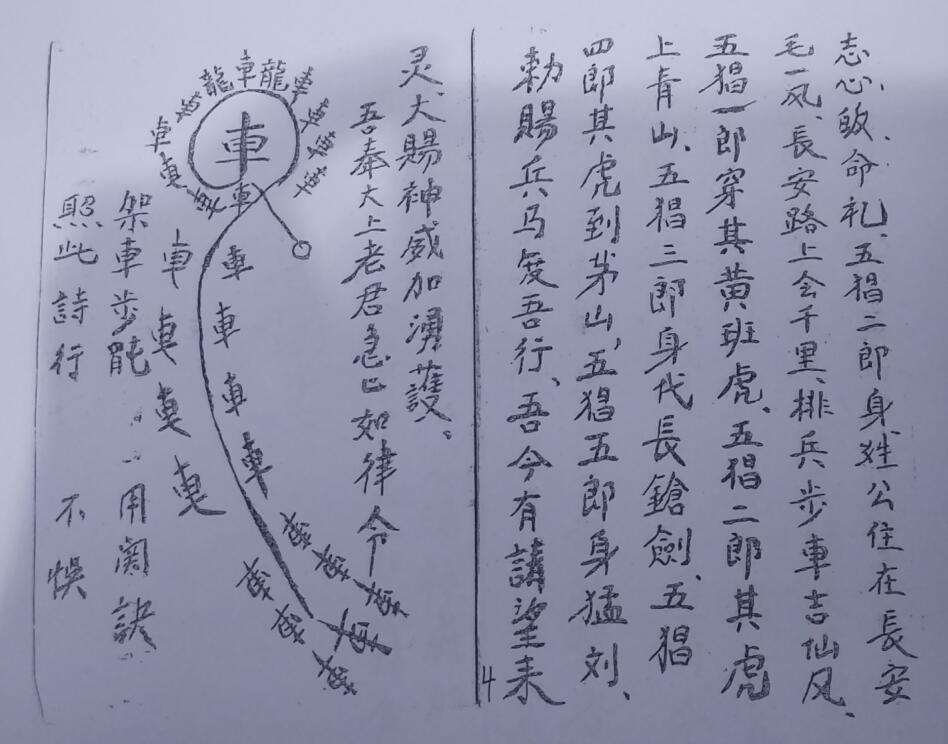 志心皈、命礼、五猖二郎身姓公住在長安
毛一凤、長安路上会千里、排兵步車吉仙凤、
五猖一郎穿其黄班虎、五猖二郎其虎
上青山、五猖三郎身代長鎗劍、五猖
四郎其虎到茅山、五猖五郎身猛刘、
勅賜兵马度吾行、吾今有請望来
4
灵、大賜神威加湧護、
吾奉大上老君急急如律令
車
龍車龍車
車車
車
車
車
車
車
車
車
車
車
車
車
架車步 用 訣
照此詩行 不悞